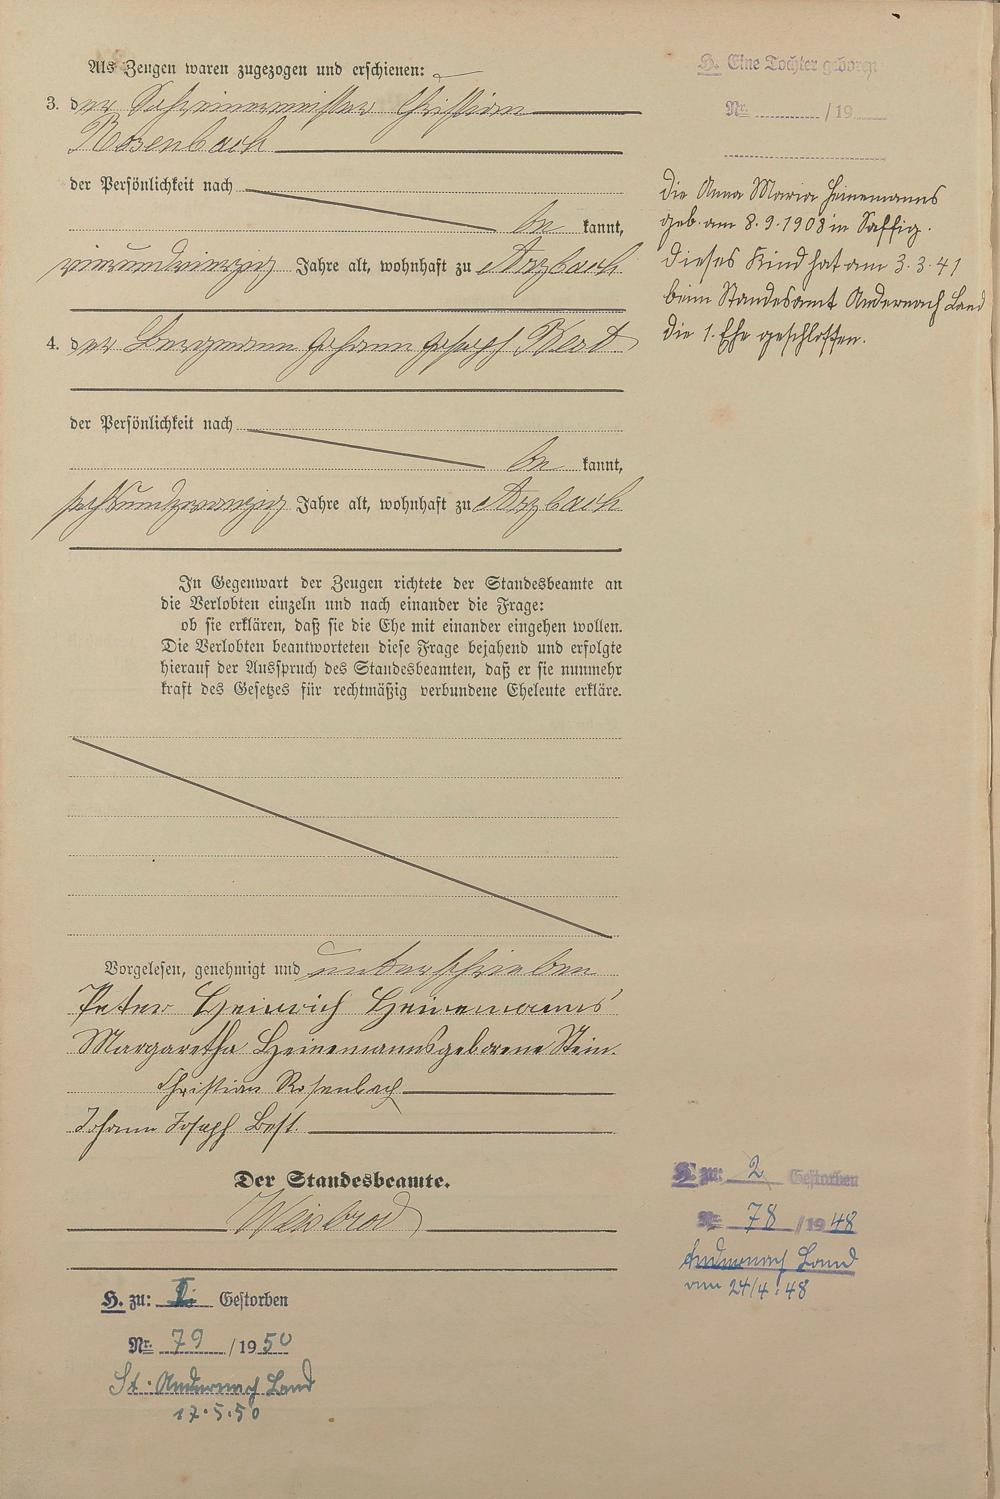 Als Zeugen waren zugezogen und erschienen:
3. der Schreinermeister Christian
Rosenbach
der Persönlichkeit nach
be kannt,
vierundvierzig Jahre alt, wohnhaft zu Arzbach
4. der Bergmann Johann Joseph Best
der Persönlichkeit nach
be kannt,
sechsundzwanzig Jahre alt, wohnhaft zu Arzbach
In Gegenwart der Zeugen richtete der Standesbeamte an
die Verlobten einzeln und nach einander die Frage:
ob sie erklären, daß sie die Ehe mit einander eingehen wollen.
Die Verlobten beantworteten diese Frage bejahend und erfolgte
hierauf der Ausspruch des Standesbeamten, daß er sie nunmehr
kraft des Gesetzes für rechtmäßig verbundene Eheleute erkläre.
Vorgelesen, genehmigt und unterschrieben
Peter Heinrich Heinemanns
Margaretha Heinemanns geborene Stein.
Christian Rosenbach
Johann Joseph Best.
Der Standesbeamte.
Weisbrod
H. zu: I. Gestorben
Nr. 79 / 19 50
St. Andernach Land
17.5.50
H. Eine Tochter geboren
Nr. / 19
die Anna Maria Heinemanns
geb. am 8.9.1908 in Saffig.
dieses Kind hat am 3.3.41
beim Standesamt Andernach Land
die 1. Ehe geschlossen.
H. zu: 2 Gestorben
Nr. 78 / 19 48
Andernach Land
am 24/4.48